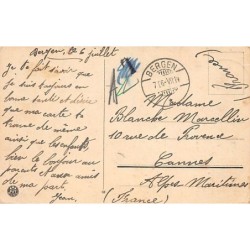 Bergen, le 6 juillet
Je te fais savoir que
je suis toujours en
bonne santé et désire
que ma carte te
trouve de même
ainsi que les enfants
bien le bonjour aux
parents et aux amis
de ma part.
Jean
BERGEN
France
Madame
Blanche Marcellin
10 rue de Provence
Cannes
Alpes Maritimes
(France)